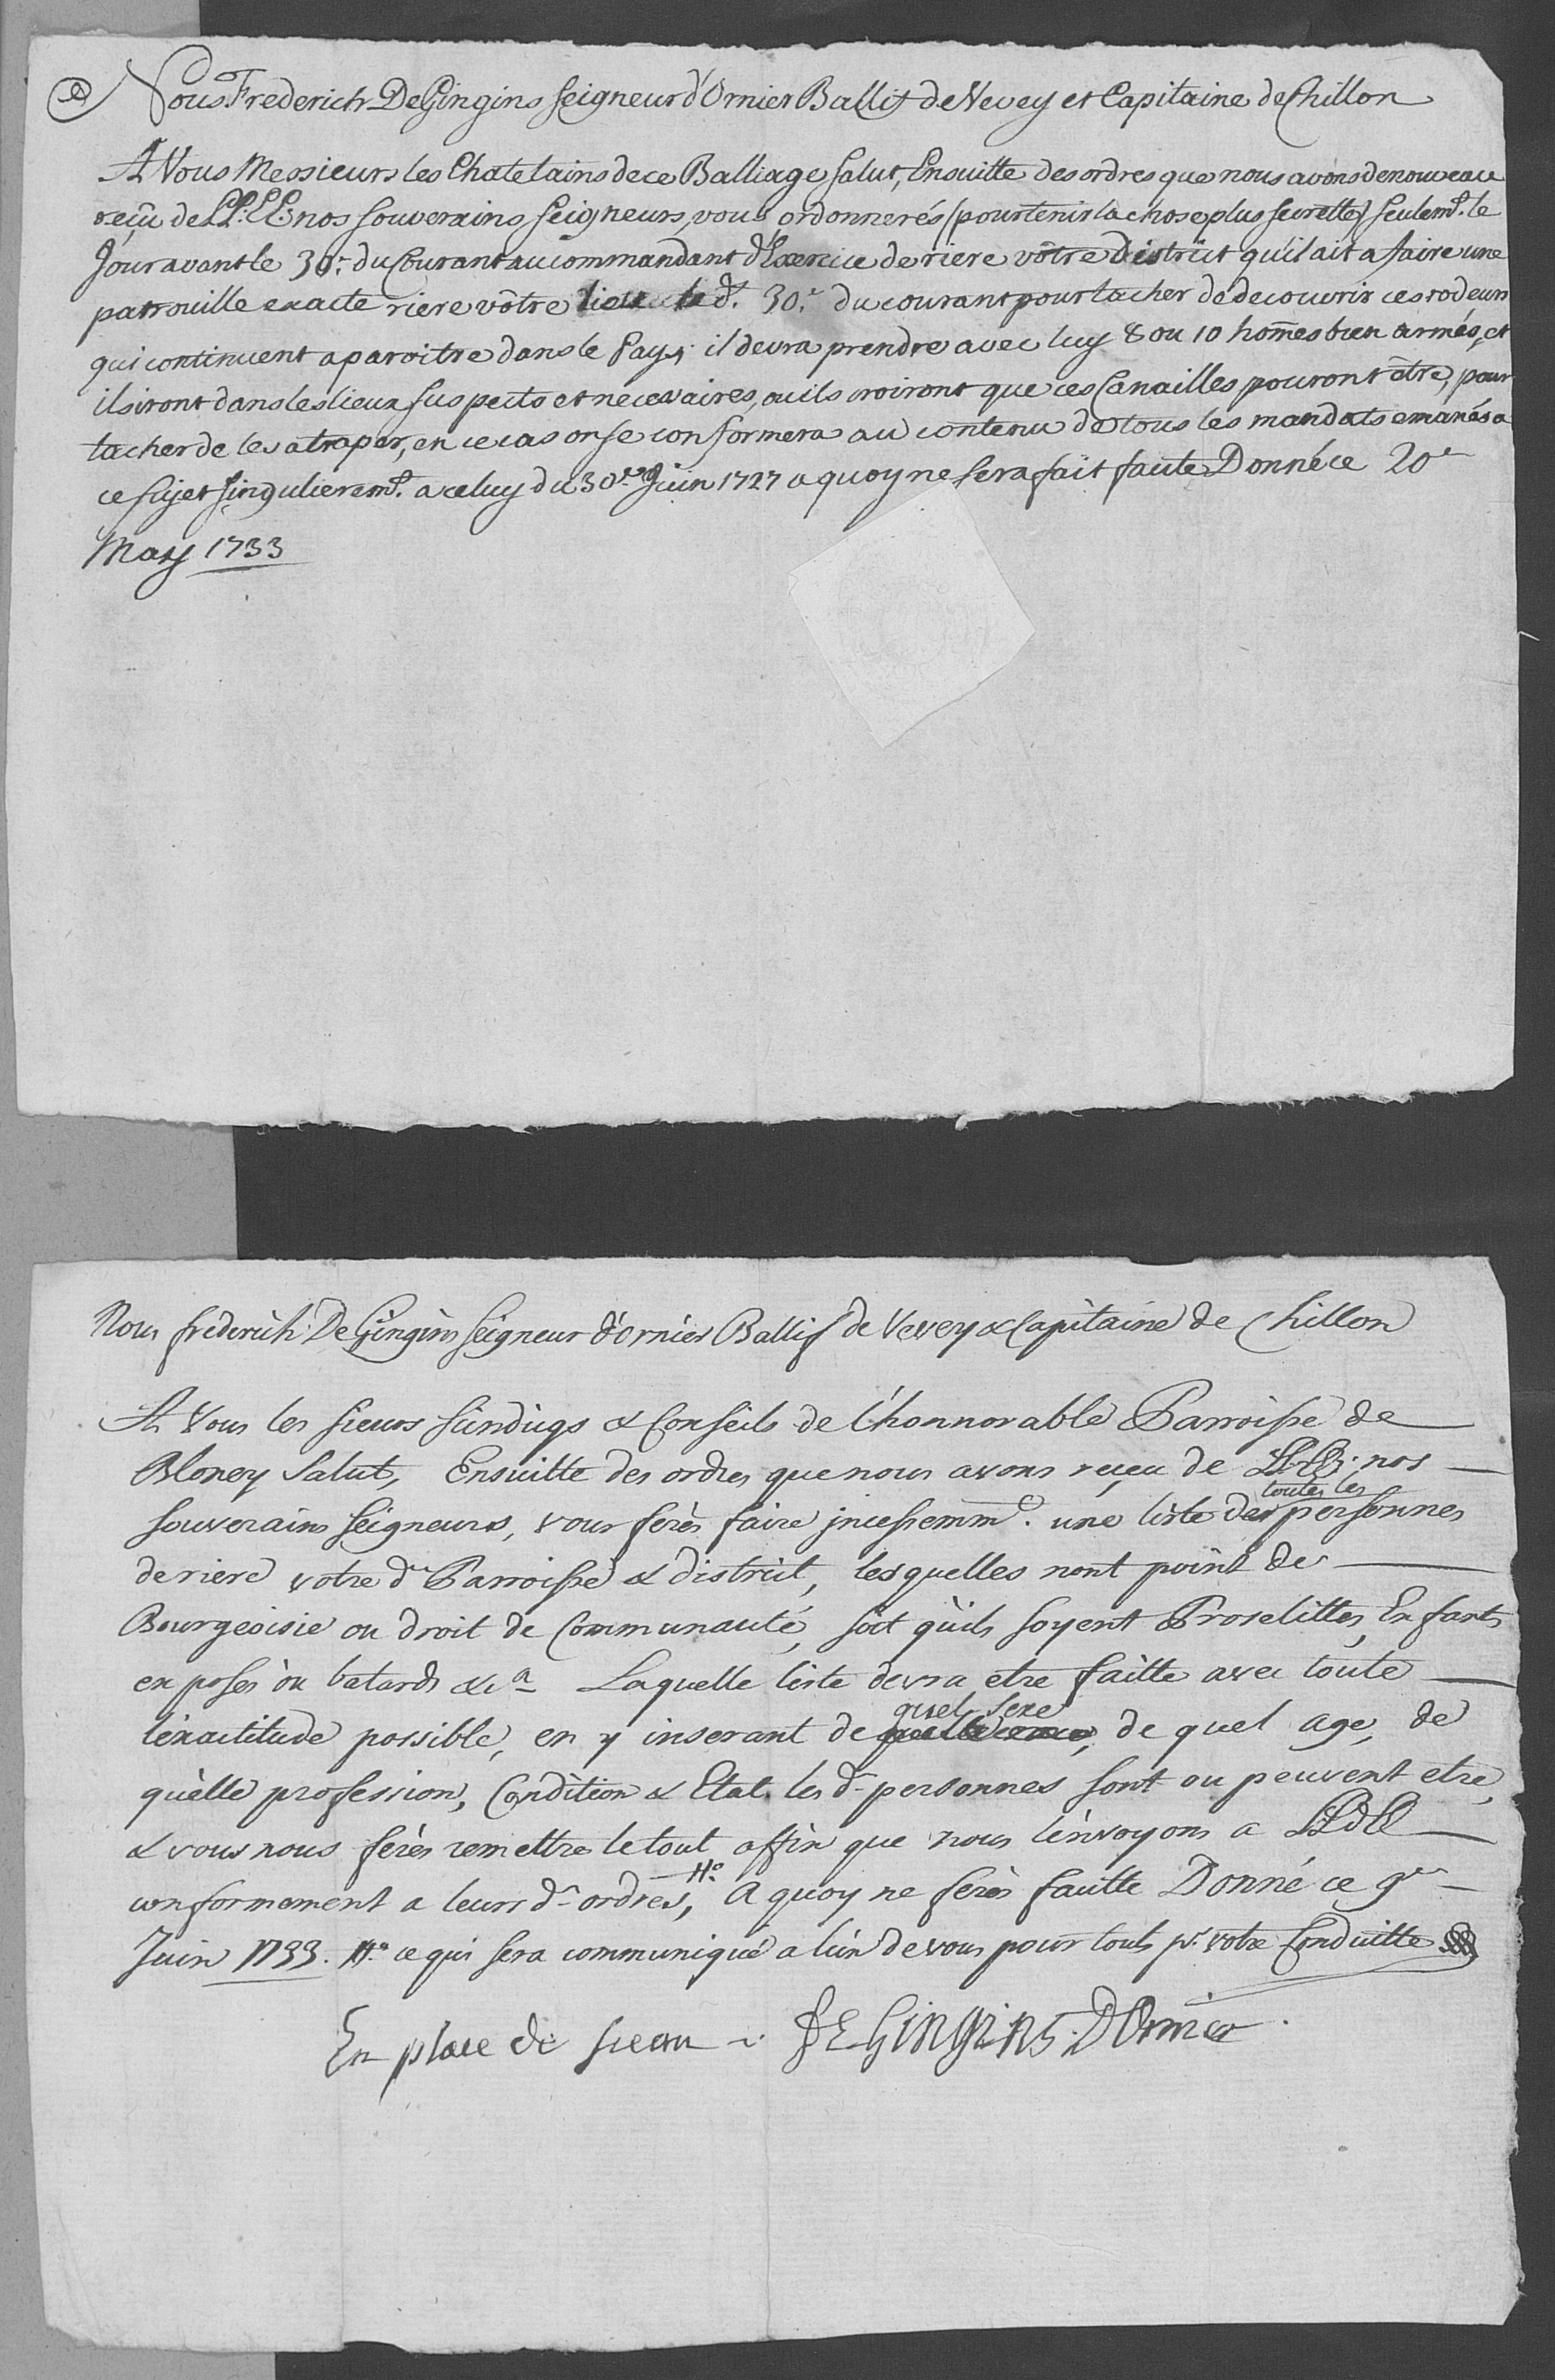 Nous Frederich De Gingins Seigneur d'Ornier Ballif de Vevey et Capitaine de Chillon
A Vous Messieurs les Chatelains de ce Balliage Salut, Ensuitte des ordres que nous avons de nouveau
reçû de LL: EE: nos Souverains Seigneurs, vous ordonnerés (pour tenir la chose plus secrette) seulem.t le
Jour avant le 30.e du Courant au commandant d'Exercice de riere vôtre District qu'il ait a faire une
patrouille exacte riere vôtre lieu le d.t 30.e du courant pour tacher de decouvrir ces rodeurs
qui continuent a paroitre dans le Pays; il devra prendre avec luy 8 ou 10 hom̃es bien armés, et
ils iront dans les lieux suspects et necessaires, ou ils croiront que ces Canailles pouront être, pour
tacher de les atraper, en ce cas on se conformera au contenu de tous les mandats emanés a
ce sujet singulierem.t a celuy du 30.e Juin 1727 a quoy ne sera fait faute Donné ce 20.e
May 1733
Nous frederich De Gingins Seigneur d'Ornier Ballif de Vevey & Capitaine de Chillon
A Vous les Sieurs Sindiqs & Conseils de l'honnorable Parroisse de
Bloney Salut, Ensuitte des ordres que nous avons reçeu de LLEE. nos
souverains Seigneurs, vous ferés faire jncessemm.t une liste des toutes les personnes
de riere votre d.e Parroisse & district, lesquelles nont point de
Bourgeoisie ou droit de Communauté, soit qu'ils soyent Proselittes, Enfants
exposés ou batards &c.a Laquelle liste devra etre faitte avec toute
l'exactitude possible, en y inserant de quel sexe, de quel age, de
quelle profession, Condition & Etat les d.es personnes sont ou peuvent etre,
& vous nous ferés remettre le tout affin que nous l'envoyons a LLEE
conformement a leurs d.s ordres, #. A quoy ne ferés fautte Donné ce 9.e
Juin 1733. #. ce qui sera communiqué a l'un de vous pour touts p.r votre Conduitte
En place de sceau De Gingins D'Ornier